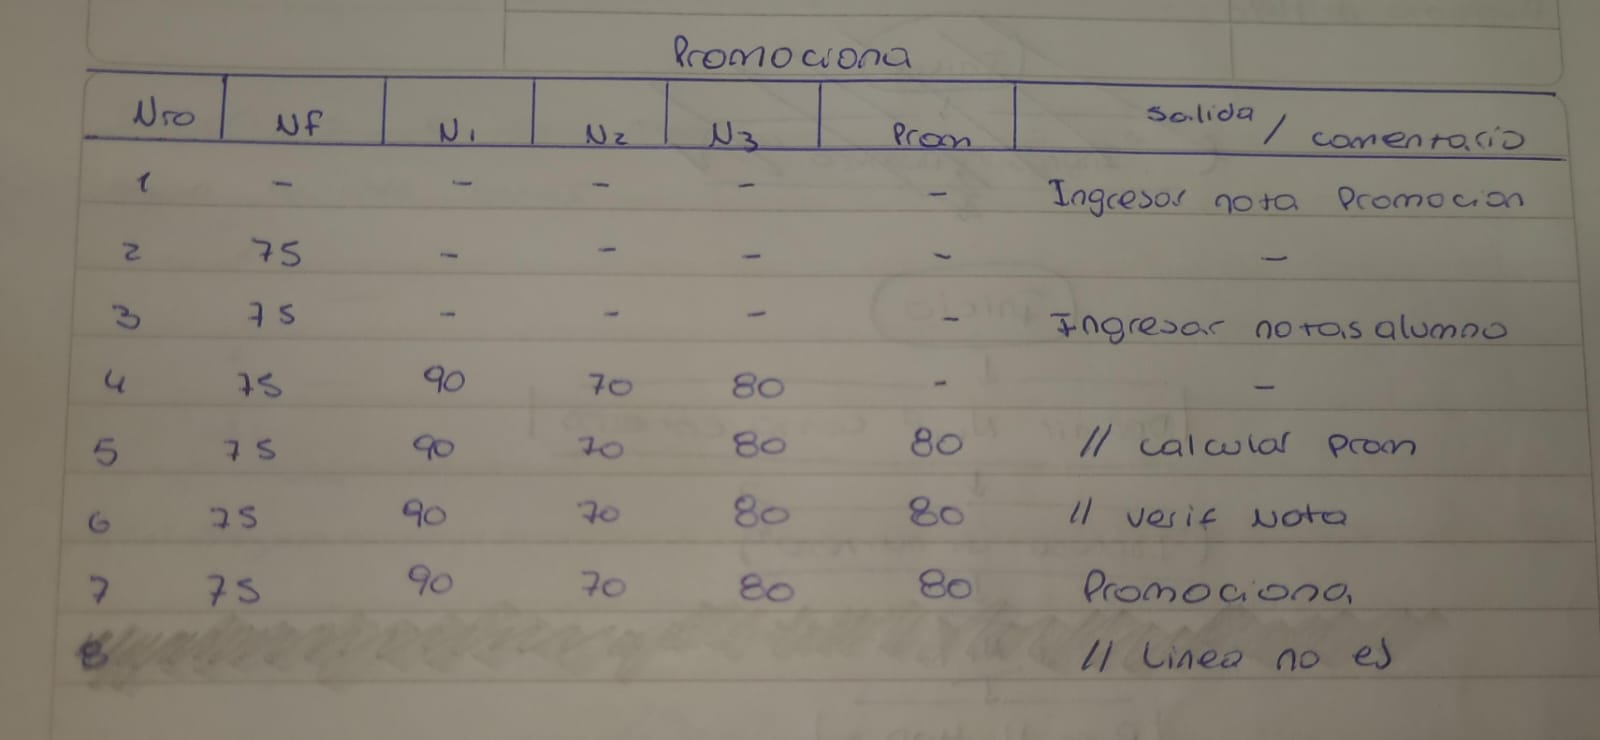 Promociona
Nro NF N1 N2 N3 Prom Salida / comentario
1 - - - - - Ingresar nota Promocion
2 75 - - - - -
3 75 - - - - Ingresar notas alumno
4 75 90 70 80 - -
5 75 90 70 80 80 // calcular prom
6 75 90 70 80 80 // verif Nota
7 75 90 70 80 80 Promociona
8 // Linea no ej